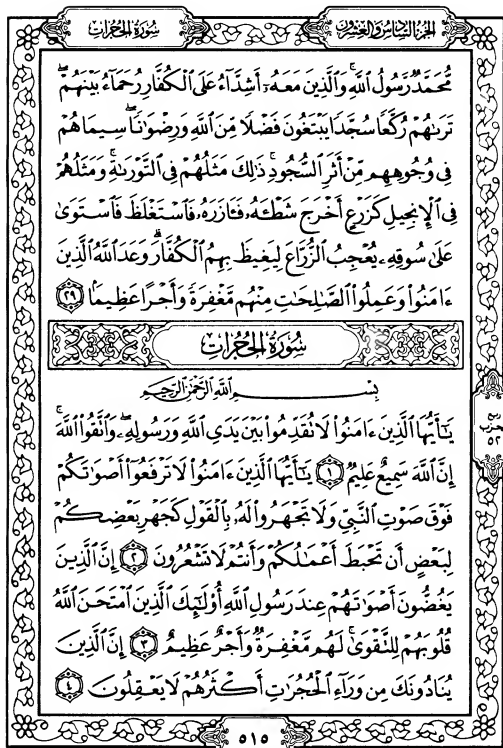 سُورَةُ الحُجُرَاتِ
الجُزءُ السَّادِسُ وَالعِشرُونَ
مُّحَمَّدٌ رَّسُولُ ٱللَّهِ ۚ وَٱلَّذِينَ مَعَهُۥٓ أَشِدَّآءُ عَلَى ٱلْكُفَّارِ رُحَمَآءُ بَيْنَهُمْ ۖ
تَرَىٰهُمْ رُكَّعًا سُجَّدًا يَبْتَغُونَ فَضْلًا مِّنَ ٱللَّهِ وَرِضْوَٰنًا ۖ سِيمَاهُمْ
فِى وُجُوهِهِم مِّنْ أَثَرِ ٱلسُّجُودِ ۚ ذَٰلِكَ مَثَلُهُمْ فِى ٱلتَّوْرَىٰةِ ۚ وَمَثَلُهُمْ
فِى ٱلْإِنجِيلِ كَزَرْعٍ أَخْرَجَ شَطْـَٔهُۥ فَـَٔازَرَهُۥ فَٱسْتَغْلَظَ فَٱسْتَوَىٰ
عَلَىٰ سُوقِهِۦ يُعْجِبُ ٱلزُّرَّاعَ لِيَغِيظَ بِهِمُ ٱلْكُفَّارَ ۗ وَعَدَ ٱللَّهُ ٱلَّذِينَ
ءَامَنُوا۟ وَعَمِلُوا۟ ٱلصَّٰلِحَٰتِ مِنْهُم مَّغْفِرَةً وَأَجْرًا عَظِيمًۢا ٢٩
سُورَةُ الحُجُرَاتِ
بِسْمِ ٱللَّهِ ٱلرَّحْمَٰنِ ٱلرَّحِيمِ
يَـٰٓأَيُّهَا ٱلَّذِينَ ءَامَنُوا۟ لَا تُقَدِّمُوا۟ بَيْنَ يَدَىِ ٱللَّهِ وَرَسُولِهِۦ ۖ وَٱتَّقُوا۟ ٱللَّهَ ۚ
إِنَّ ٱللَّهَ سَمِيعٌ عَلِيمٌ ١ يَـٰٓأَيُّهَا ٱلَّذِينَ ءَامَنُوا۟ لَا تَرْفَعُوٓا۟ أَصْوَٰتَكُمْ
فَوْقَ صَوْتِ ٱلنَّبِىِّ وَلَا تَجْهَرُوا۟ لَهُۥ بِٱلْقَوْلِ كَجَهْرِ بَعْضِكُمْ
لِبَعْضٍ أَن تَحْبَطَ أَعْمَٰلُكُمْ وَأَنتُمْ لَا تَشْعُرُونَ ٢ إِنَّ ٱلَّذِينَ
يَغُضُّونَ أَصْوَٰتَهُمْ عِندَ رَسُولِ ٱللَّهِ أُو۟لَـٰٓئِكَ ٱلَّذِينَ ٱمْتَحَنَ ٱللَّهُ
قُلُوبَهُمْ لِلتَّقْوَىٰ ۚ لَهُم مَّغْفِرَةٌ وَأَجْرٌ عَظِيمٌ ٣ إِنَّ ٱلَّذِينَ
يُنَادُونَكَ مِن وَرَآءِ ٱلْحُجُرَٰتِ أَكْثَرُهُمْ لَا يَعْقِلُونَ ٤
حزب
٥٢
٥١٥